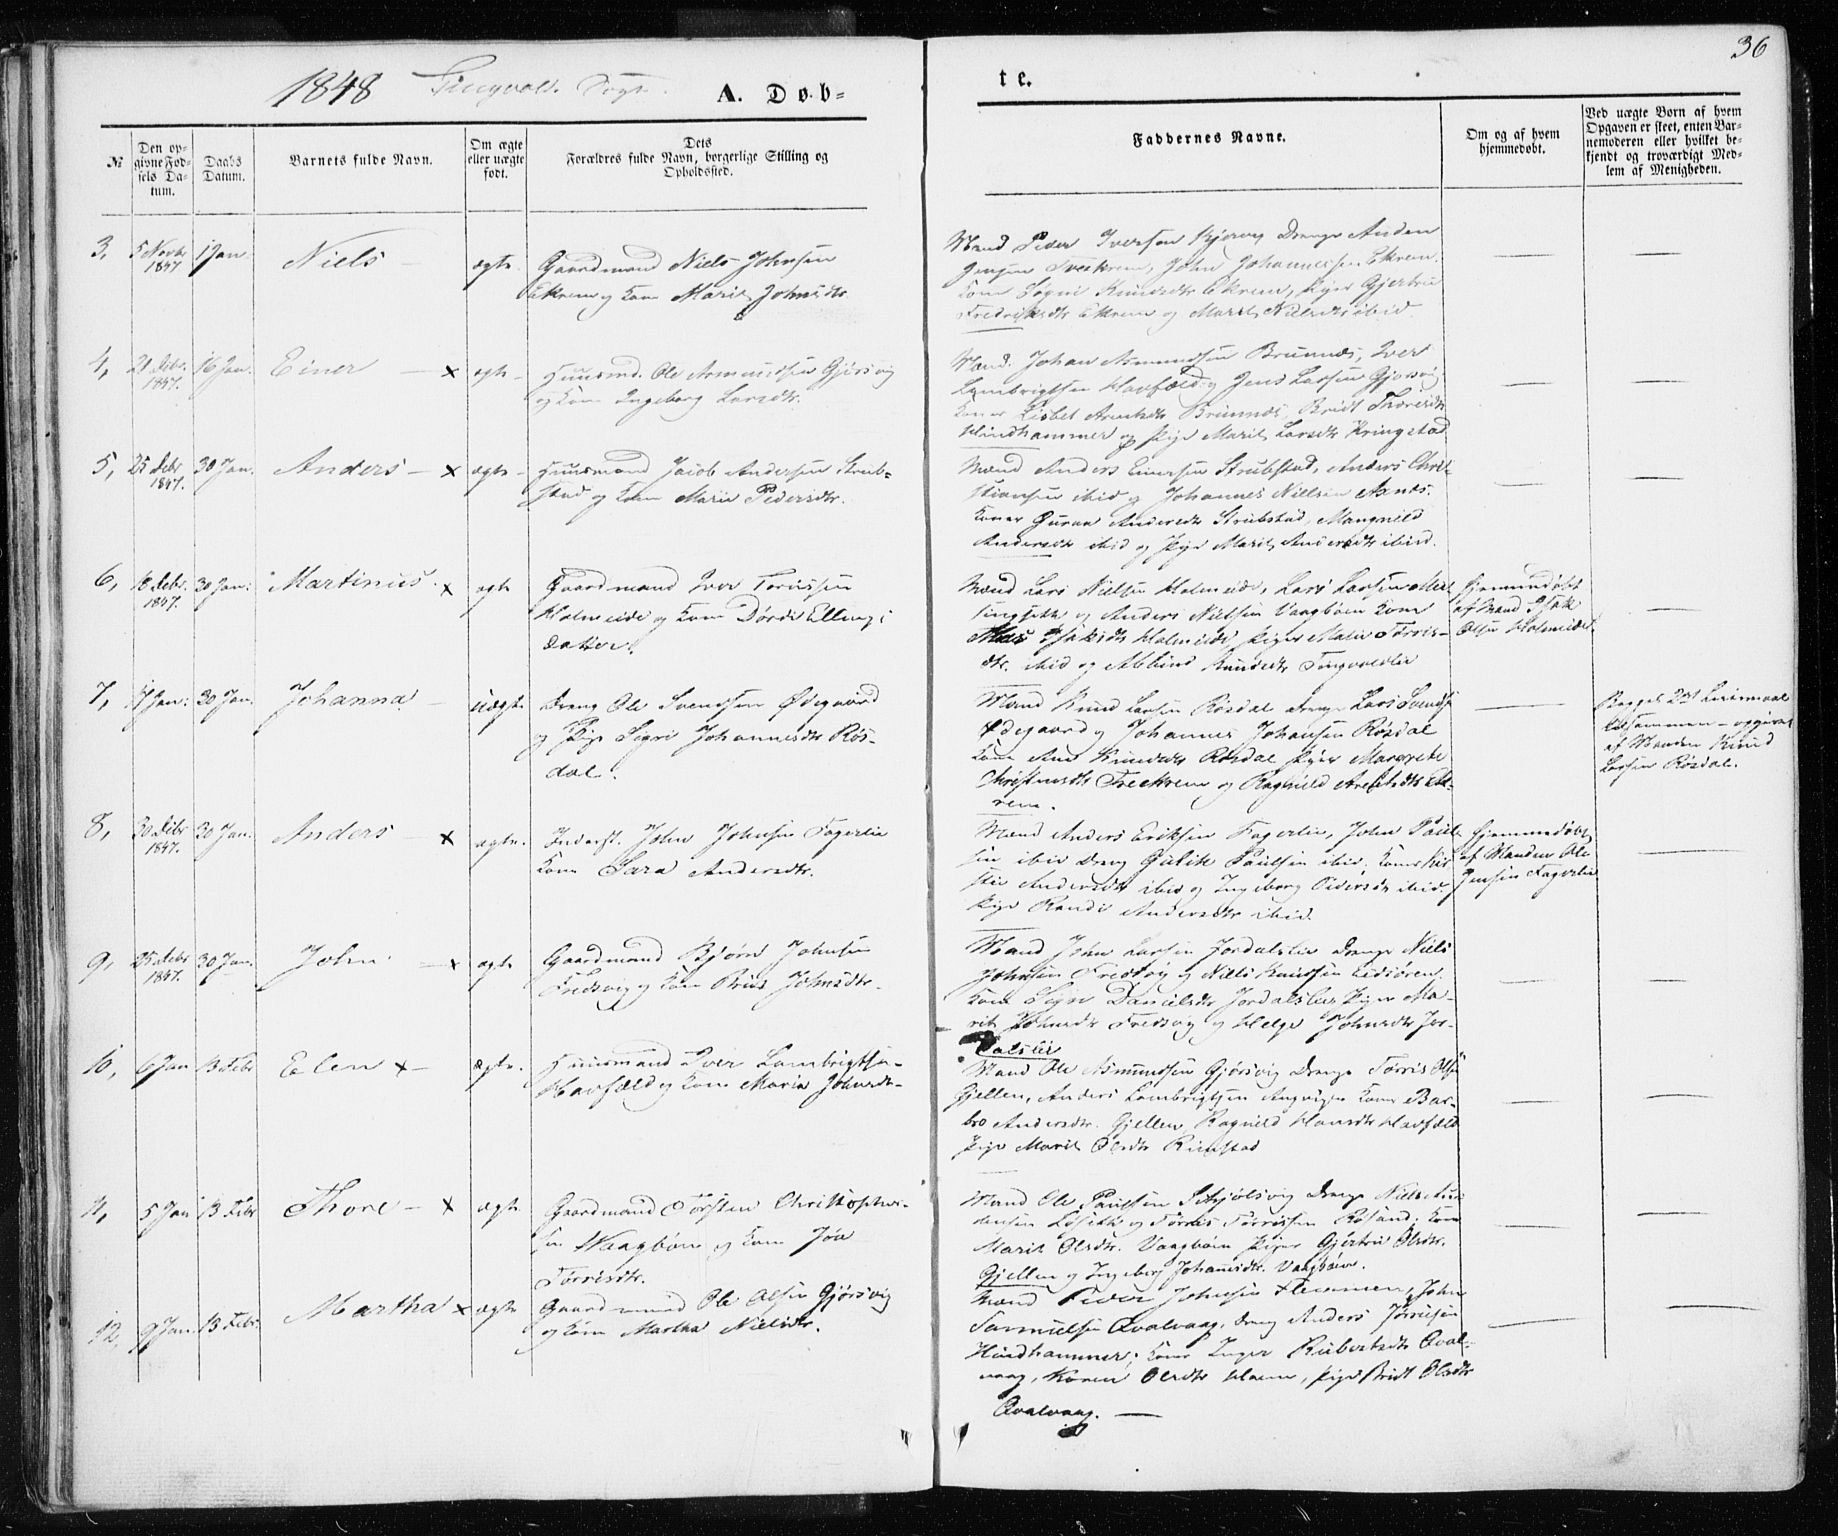 36
1848 Tingvold Sogn A. Døb-
te.
№
Den op-
givne Fød-
sels Da-
tum.
Daabs
Datum.
Barnets fulde Navn.
Om ægte
eller uægte
født.
Dets
Forældres fulde Navn, borgerlige Stilling og
Opholdssted.
Faddernes Navne.
Om og af hvem
hjemmedøbt.
Ved uægte Børn af hvem
Opgaven er skeet, enten Bar-
nemoderen eller hvilket be-
kjendt og troværdigt Med-
lem af Menigheden.
3, 5 Novbr 1847 1 Jan. Niels – ægte
Gaardmand Niels Johnsen
Ekrem og Kone Marit Johnsdtr
Mænd Peder Iversen Drenge
John Johannessen Ekrem.
Kone Knudsdtr Ekrem, Pige Gjertrue
Fredriksdtr Ekrem og Marit Nielsdtr ibid.
4, 21 Debr. 1847. 16 Jan. Einer – x ægte –
Huusmd. Ole Asmundsen Gjørsvig
og Kone Ingeborg Larsdtr.
Mænd. Johan Asmundsen Brunnes, Iver
Lambrigtsen Havfæld og Jens Larsen Gjørsvig
Koner Lisbet Brunnes, Brit
Hindhammer og Pige Marit Larsdtr Kringstad
5, 25 Debr 1847. 30 Jan. Anders – x ægte –
Huusmand Jacob Andersen Strub-
stad og Kone Marie Pedersdtr.
Mænd Anders Einersen Strubstad, Anders Chri-
stiansen ibid og Johannes Nielsen Asnes.
Koner Guraa Andersdtr Strubstad, Mangnild
Andersdtr ibid og Pige Marit Andersdtr ibid.
6, 18 Debr. 1847. 30 Jan: Martinus. x ægte
Gaardmand Iver Torrissen
Holmeide og Kone Dordi Ellings
datter.
Mænd Lars Nielsen Holmeide, Lars Larsen
og Anders Nielsen Vaagbøen Kone
Holmeide, Piger Malie Torris-
dtr. ibid og Knudsdtr Tingvoldlie
Hjemmedøbt
af Mand Isak
Olsen Holmeide.
7, 17 Jan: 30 Jan. Johanna – uægte
Dreng Ole Svendsen Ødegaard
og Pige Sigri Johannesdtr Røs-
dal.
Mænd Knud Larsen Røsdal Drenge Lars Svends.
Ødegaard og Johannes Johansen Røsdal
Kone Ane Knudsdtr Røsdal Piger Margrete
Christensdtr og Ragnild Ek-
rem.
Begges 2det Leiermaal
tilsammen – opgivet
af Manden Knud
Larsen Røsdal.
8, 30 Debr 1847. 30 Jan. Anders – x ægte.
Inderst. John Johnsen Fagerlie
Kone Sara Andersdtr.
Mænd Anders Eriksen Fagerlie, John Paul-
sen ibid Dreng Gulik Paulsen ibid. Koner Kir-
stie Andersdtr ibid og Ingeborg Pedersdtr ibid
Pige Randi Andersdtr ibid.
Hjemmedøbt
af Manden Ole
Jensen Fagerlie
9, 25 Debr 1847. 30 Jan. John. – x ægte
Gaardmand Bjørn Johnsen
Fredsvig og Kone Johnsdtr.
Mænd John Larsen Jordalslie Drenge Niels
Johnsen Fredsvig og Niels Knudsen Eidsøren,
Kone Sigri Danielsdtr Jordalslie, Piger Ma-
rit Johnsdtr Fredsvig og Helge Johnsdtr Jor-
dalslie
10, 6 Jan 13 Febr Elen x – ægte.
Huusmand Iver Lambrigtsen
Havfæld og Kone Maria Johnsdtr.
Mænd Ole Asmundsen Gjørsvig Drenge Torris Olsen
Gjellen, Anders Lambrigtsen Angvigen Koner Bar-
bro Andersdtr. Gjellen, Ragnild Hansdtr Havfæld
Pige Marit Olsdtr Rimstad
11, 5 Jan 13 Febr Thore – x ægte
Gaardmand Torsten Christopher-
sen Waagbøen og Kone Jøa
Torrisdtr.
Mænd Ole Paulsen Drenge Niels
og Torris Torrissen Røsand; Kone
Marit Olsdtr. Vaagbøen Piger Gjertrue Olsdtr.
Gjellen og Ingeborg Johannesdtr. Vaagbøen.
12, 9 Jan. 13 Febr. Martha x ægte
Gaardmand Ole Olsen Gjørsvig
og Kone Martha Nielsdtr.
Mænd Peder Johnsen Flemmen, John
Samuelsen Qvalvaag. Dreng Anders Torrissen
Hindhammer; Koner Inger Rubertsdtr Qval-
vaag, Karen Olsdtr Holmen, Pige Brit Olsdtr
Qvalvaag. —